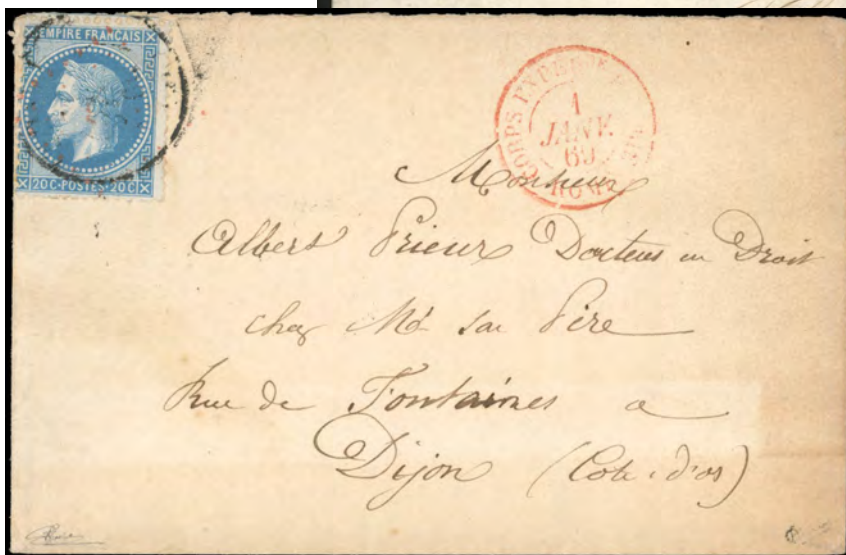 EMPIRE FRANCAIS
20C·POSTES·20C
CORPS
1
JANV.
69
Monsieur
Albert Prieur Docteur en Droit
chez Mr son Père
Rue de Fontaines a
Dijon (Cote-d'or)